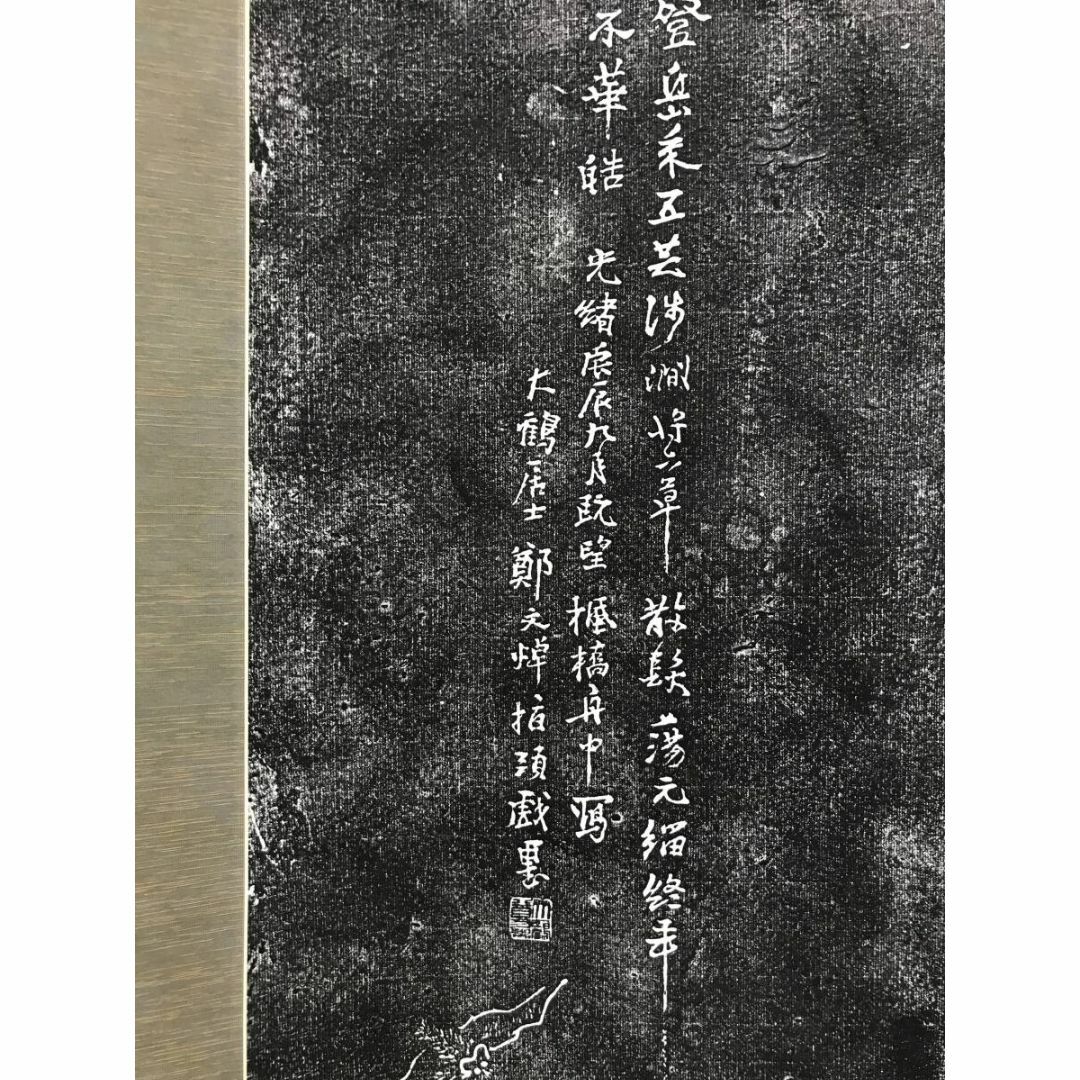 登岳采五芝涉澗將六草散髮蕩元緇終年
不華皓 光緒庚辰九月既望楓橋舟中寫
大鶴居士鄭文焯指頭戲墨